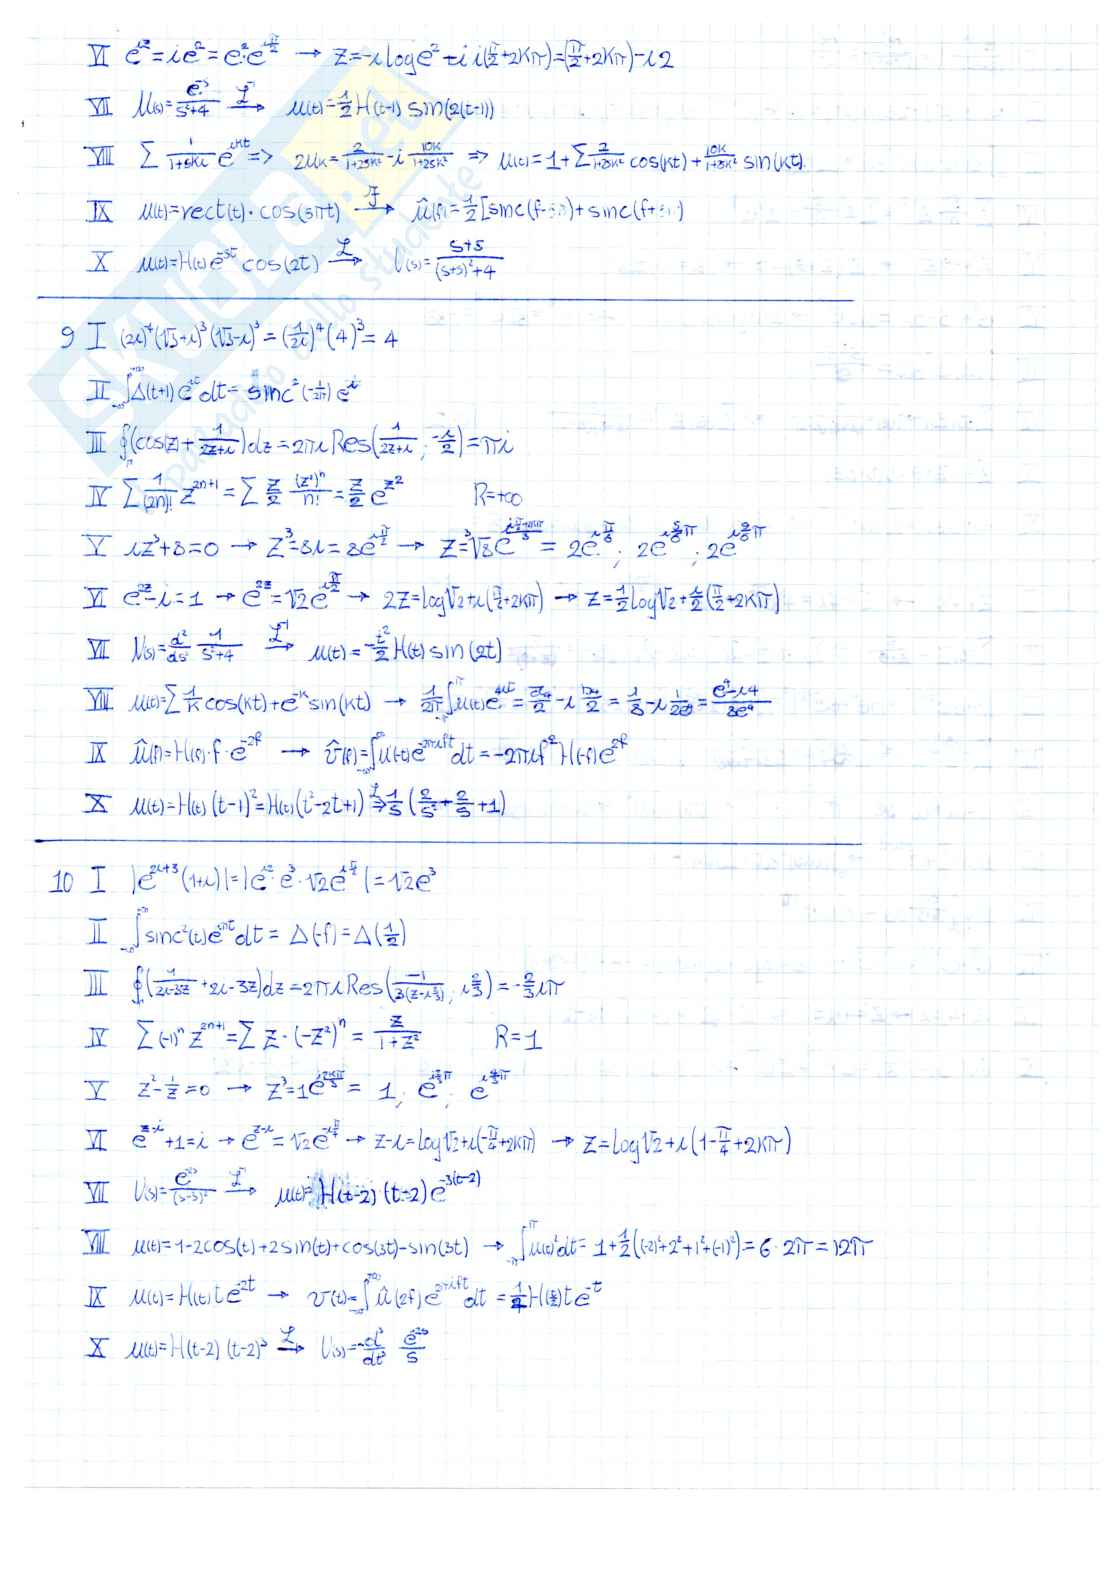 VI e^{iz}=ie²=e²·e^{iπ/2} → z=-i log e² +i i(π/2+2kπ)=(π/2+2kπ)-i2
VII U(s)= /(s²+4) →^{L^{-1}} u(t)=1/2 H(t-1) sin(2(t-1))
VIII Σ 1/(1+5ki) e^{ikt} => 2uk=2/(1+25k²)-i 10k/(1+25k²) => u(t)=1+Σ 2/(1+25k²) cos(kt)+10k/(1+25k²) sin(kt).
IX u(t)=rect(t)·cos(3πt) →^{F} û(f)=1/2[sinc(f- )+sinc(f+ )]
X u(t)=H(t)e^{-5t} cos(2t) →^{L} U(s)=(s+5)/((s+5)²+4)
9 I (2i)^{-4}(√3+i)³(√3-i)³=(1/2i)⁴(4)³=4
II ∫_{-∞}^{+∞} Δ(t+1)e^{it}dt= sinc²(-1/2π) e^{-i}
III ∮(cos(z)+1/(2z+i))dz=2πi Res(1/(2z+i); -i/2)=πi
IV Σ 1/(2n)! z^{2n+1}=Σ z/2 (z²)^n/n!=z/2 e^{z²} R=+∞
V iz³+8=0 → z³=8i=8e^{iπ/2} → z=³√8 e^{i(π/2+2kπ)/3} = 2e^{iπ/6}; 2e^{i5/6π}; 2e^{i9/6π}
VI e^{2z}-i=1 → e^{2z}=√2e^{iπ/2} → 2z=log√2+i(π/2+2kπ) → z=1/2 log√2+i/2(π/2+2kπ)
VII U(s)=d²/ds² 1/(s²+4) →^{L^{-1}} u(t)=-t²/2 H(t) sin(2t)
VIII u(t)=Σ 1/k cos(kt)+e^{-k} sin(kt) → 1/2π ∫_{-π}^{π} u(t)e^{-4it}= a₄/2 -i b₄/2 = 1/8 -i 1/2e⁴ = (e⁴-i4)/8e⁴
IX û(f)=H(f)·f·e^{-2f} → v̂(f)=∫_{-∞}^{+∞} u(-t)e^{-2πift}dt=-2πif²H(-f)e^{2f}
X u(t)=H(t)(t-1)²=H(t)(t²-2t+1) →^{L} 1/s(2/s²+2/s+1)
10 I |e^{2i+3}(1+i)|=|e^{i2}·e³·√2e^{iπ/4}|=√2e³
II ∫_{-∞}^{+∞} sinc²(t)e^{iπt}dt= Δ(-f)=Δ(1/2)
III ∮(1/(2i-3z)+2i-3z)dz=2πi Res(-1/(3(z-i2/3)); i2/3)=-2/3 iπ
IV Σ(-1)^n z^{2n+1}=Σ z·(-z²)^n = z/(1+z²) R=1
V z²-1/z=0 → z³=1e^{i2kπ/3}= 1; e^{i2/3π}; e^{i4/3π}
VI e^{z-i}+1=i → e^{z-i}=√2e^{-iπ/4} → z-i=log√2+i(-π/4+2kπ) → z=log√2+i(1-π/4+2kπ)
VII U(s)=e^{-2s}/(s-3)² →^{L^{-1}} u(t)= H(t-2) (t-2)e^{-3(t-2)}
VIII u(t)=1-2cos(t)+2sin(t)+cos(3t)-sin(3t) → ∫_{-π}^{π} u(t)²dt= 1+1/2((-2)²+2²+1²+(-1)²)=6·2π=12π
IX u(t)=H(t)te^{-2t} → v(t)=∫_{-∞}^{+∞} û(2f)e^{2πift}dt = 1/4 H(t/2)te^{-t}
X u(t)=H(t-2)(t-2)³ →^{L} U(s)=-d³/dt³ e^{-2s}/s